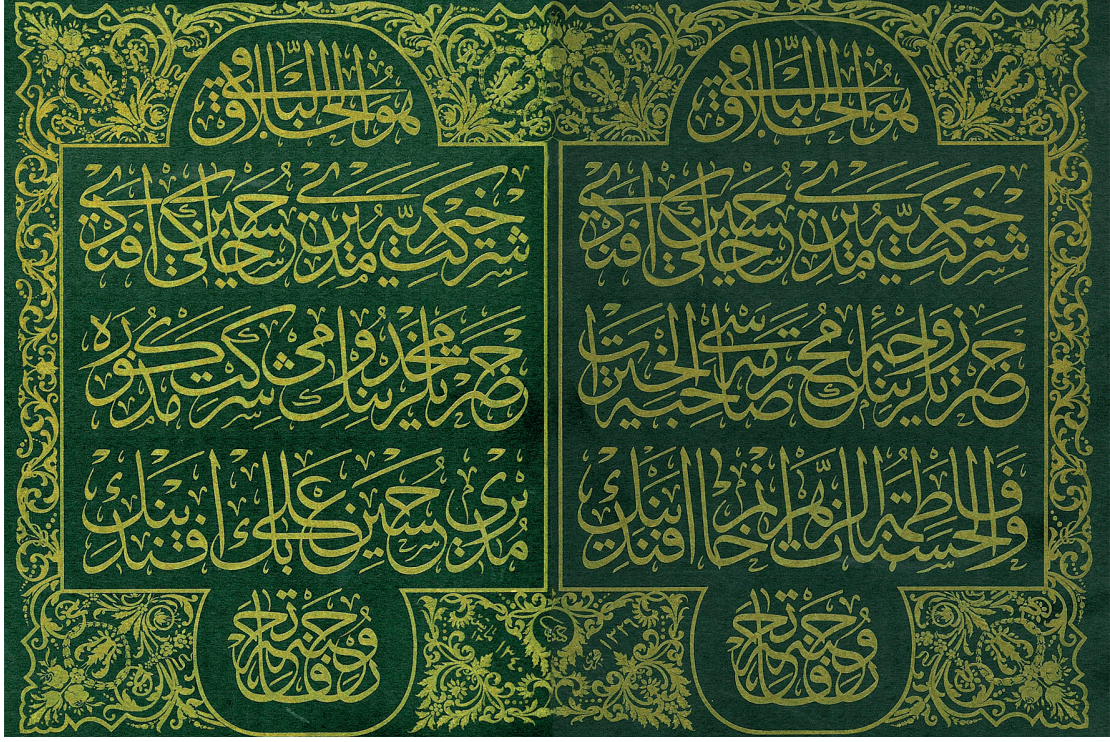 هو الخلاق الباقي
شركت خيريه مديري حسين حاكي افندي
حضرتلرينك زوجۀ محترمه سى صاحبة الخيرات
والحسنات فاطمة الزهرا خانم افندينك
روحنه فاتحه
هو الخلاق الباقي
شركت خيريه مديري حسين حاكي افندي
حضرتلرينك مخدومى شركت مذكوره
مديري حسين علي بك افندينك
روحنه فاتحه